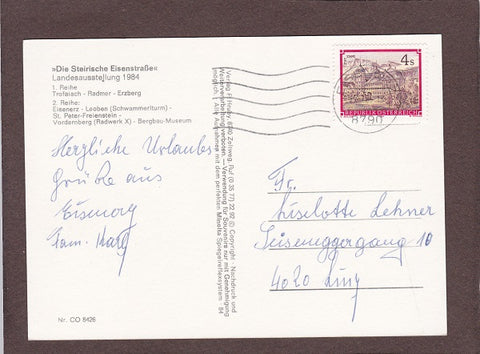 »Die Steirische Eisenstraße«
Landesausstellung 1984
1. Reihe
Trofaiach - Radmer - Erzberg
2. Reihe:
Eisenerz - Leoben (Schwammerlturm) -
St. Peter-Freienstein -
Vordernberg (Radwerk X) - Bergbau-Museum
Herzliche Urlaubs
grüße aus
Fam.
Nr. CO 8426
Verlag F. Hruby, Zeltweg. Ruf (0 35 77) 22 92 © Copyright - Nachdruck und
Weiterverarbeitung verboten - Verwendung für Souvenirs nur mit Genehmigung
möglich. Aufnahme mit dem perfekten Minolta Spiegelreflexsystem - 84
4 S
REPUBLIK ÖSTERREICH
8790
Fr.
Liselotte Lehner
10
4020 Linz